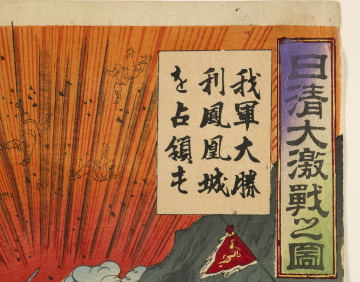 日清大激戰之圖
我軍大勝
利鳳凰城
を占領す